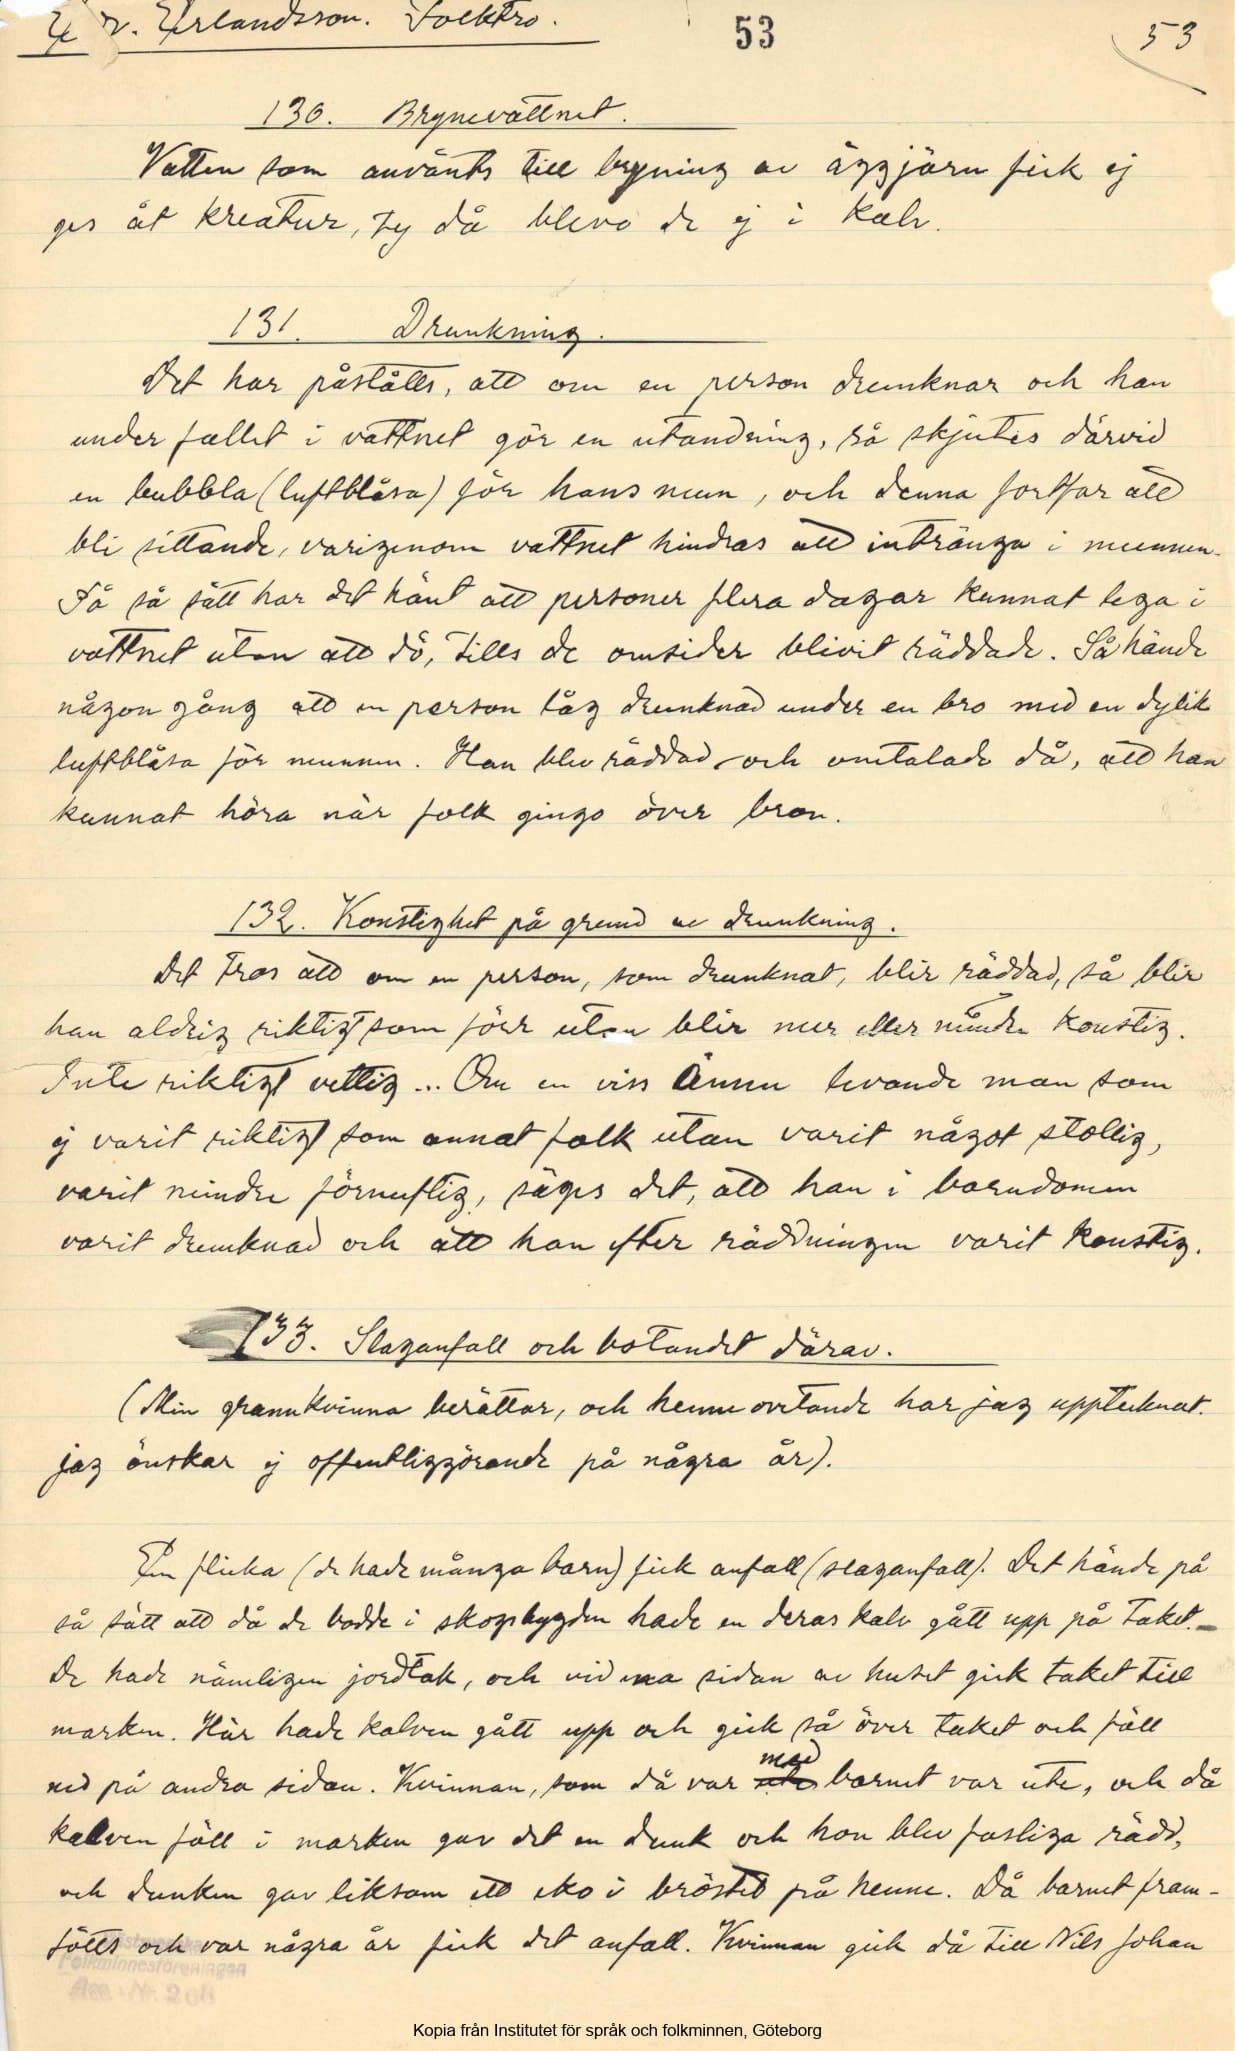 E. v. Erlandsson. Folktro.
53
53
130. Brynevattnet.
Vatten som använts till bryning av äggjärn fick ej
ges åt kreatur, ty då blevo de ej i kalv.
131. Drunkning.
Det har påståtts, att om en person drunknar och han
under fallet i vattnet gör en utandning, så skjutes därvid
en bubbla (luftblåsa) för hans mun, och denna fortfar att
bli sittande, varigenom vattnet hindras att intränga i munnen.
På så sätt har det hänt att personer flera dagar kunnat lega i
vattnet utan att dö, tills de omsider blivit räddade. Så hände
någon gång att en person låg drunknad under en bro med en dylik
luftblåsa för munnen. Han blev räddad och omtalade då, att han
kunnat höra när folk gingo över bron.
132. Konstighet på grund av drunkning.
Det tros att om en person, som drunknat, blir räddad, så blir
han aldrig riktigt som förr utan blir mer eller mindre konstig.
Inte riktigt vettig... Om en viss ännu levande man som
ej varit riktigt som annat folk utan varit något stollig,
varit mindre förnuftig, säges det, att han i barndomen
varit drunknad och att han efter räddningen varit konstig.
133. Slaganfall och botandet därav.
(Min grannkvinna berättar, och henne ovetande har jag upptecknat.
jag önskar ej offentliggörande på några år).
En flicka (de hade många barn) fick anfall (slaganfall). Det hände på
så sätt att då de bodde i skogsbygden hade en deras kalv gått upp på taket.-
De hade nämligen jordtak, och vid ena sidan av huset gick taket till
marken. Här hade kalven gått upp och gick så över taket och föll
ned på andra sidan. Kvinnan, som då var med barnet var ute, och då
kalven föll i marken gav det en dunk och hon blev fasliga rädd,
och dunken gav liksom ett eko i bröstet på henne. Då barnet fram-
fötts och var några år fick det anfall. Kvinnan gick då till Nils Johan
Folkminnesföreningen
Kopia från Institutet för språk och folkminnen, Göteborg